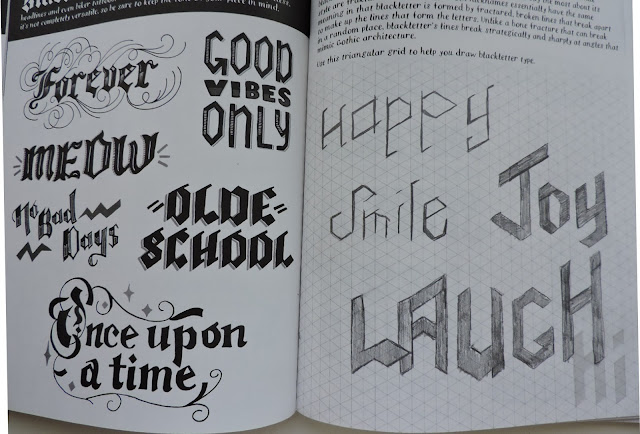 headlines and even biker tattoos
it's not completely versatile, so be sure to keep the tone of your piece in mind.
Forever
GOOD
VIBES
ONLY
MEOW
No Bad
Days
OLDE
SCHOOL
Once upon
a time,
meaning in that blackletter is formed by fractured, broken lines that break apart
to make up the lines that form the letters. Unlike a bone fracture that can break
in a random place, blackletter's lines break strategically and sharply at angles that
mimic Gothic architecture.
Use this triangular grid to help you draw blackletter type.
Happy
Smile
Joy
LAUGH
Hi